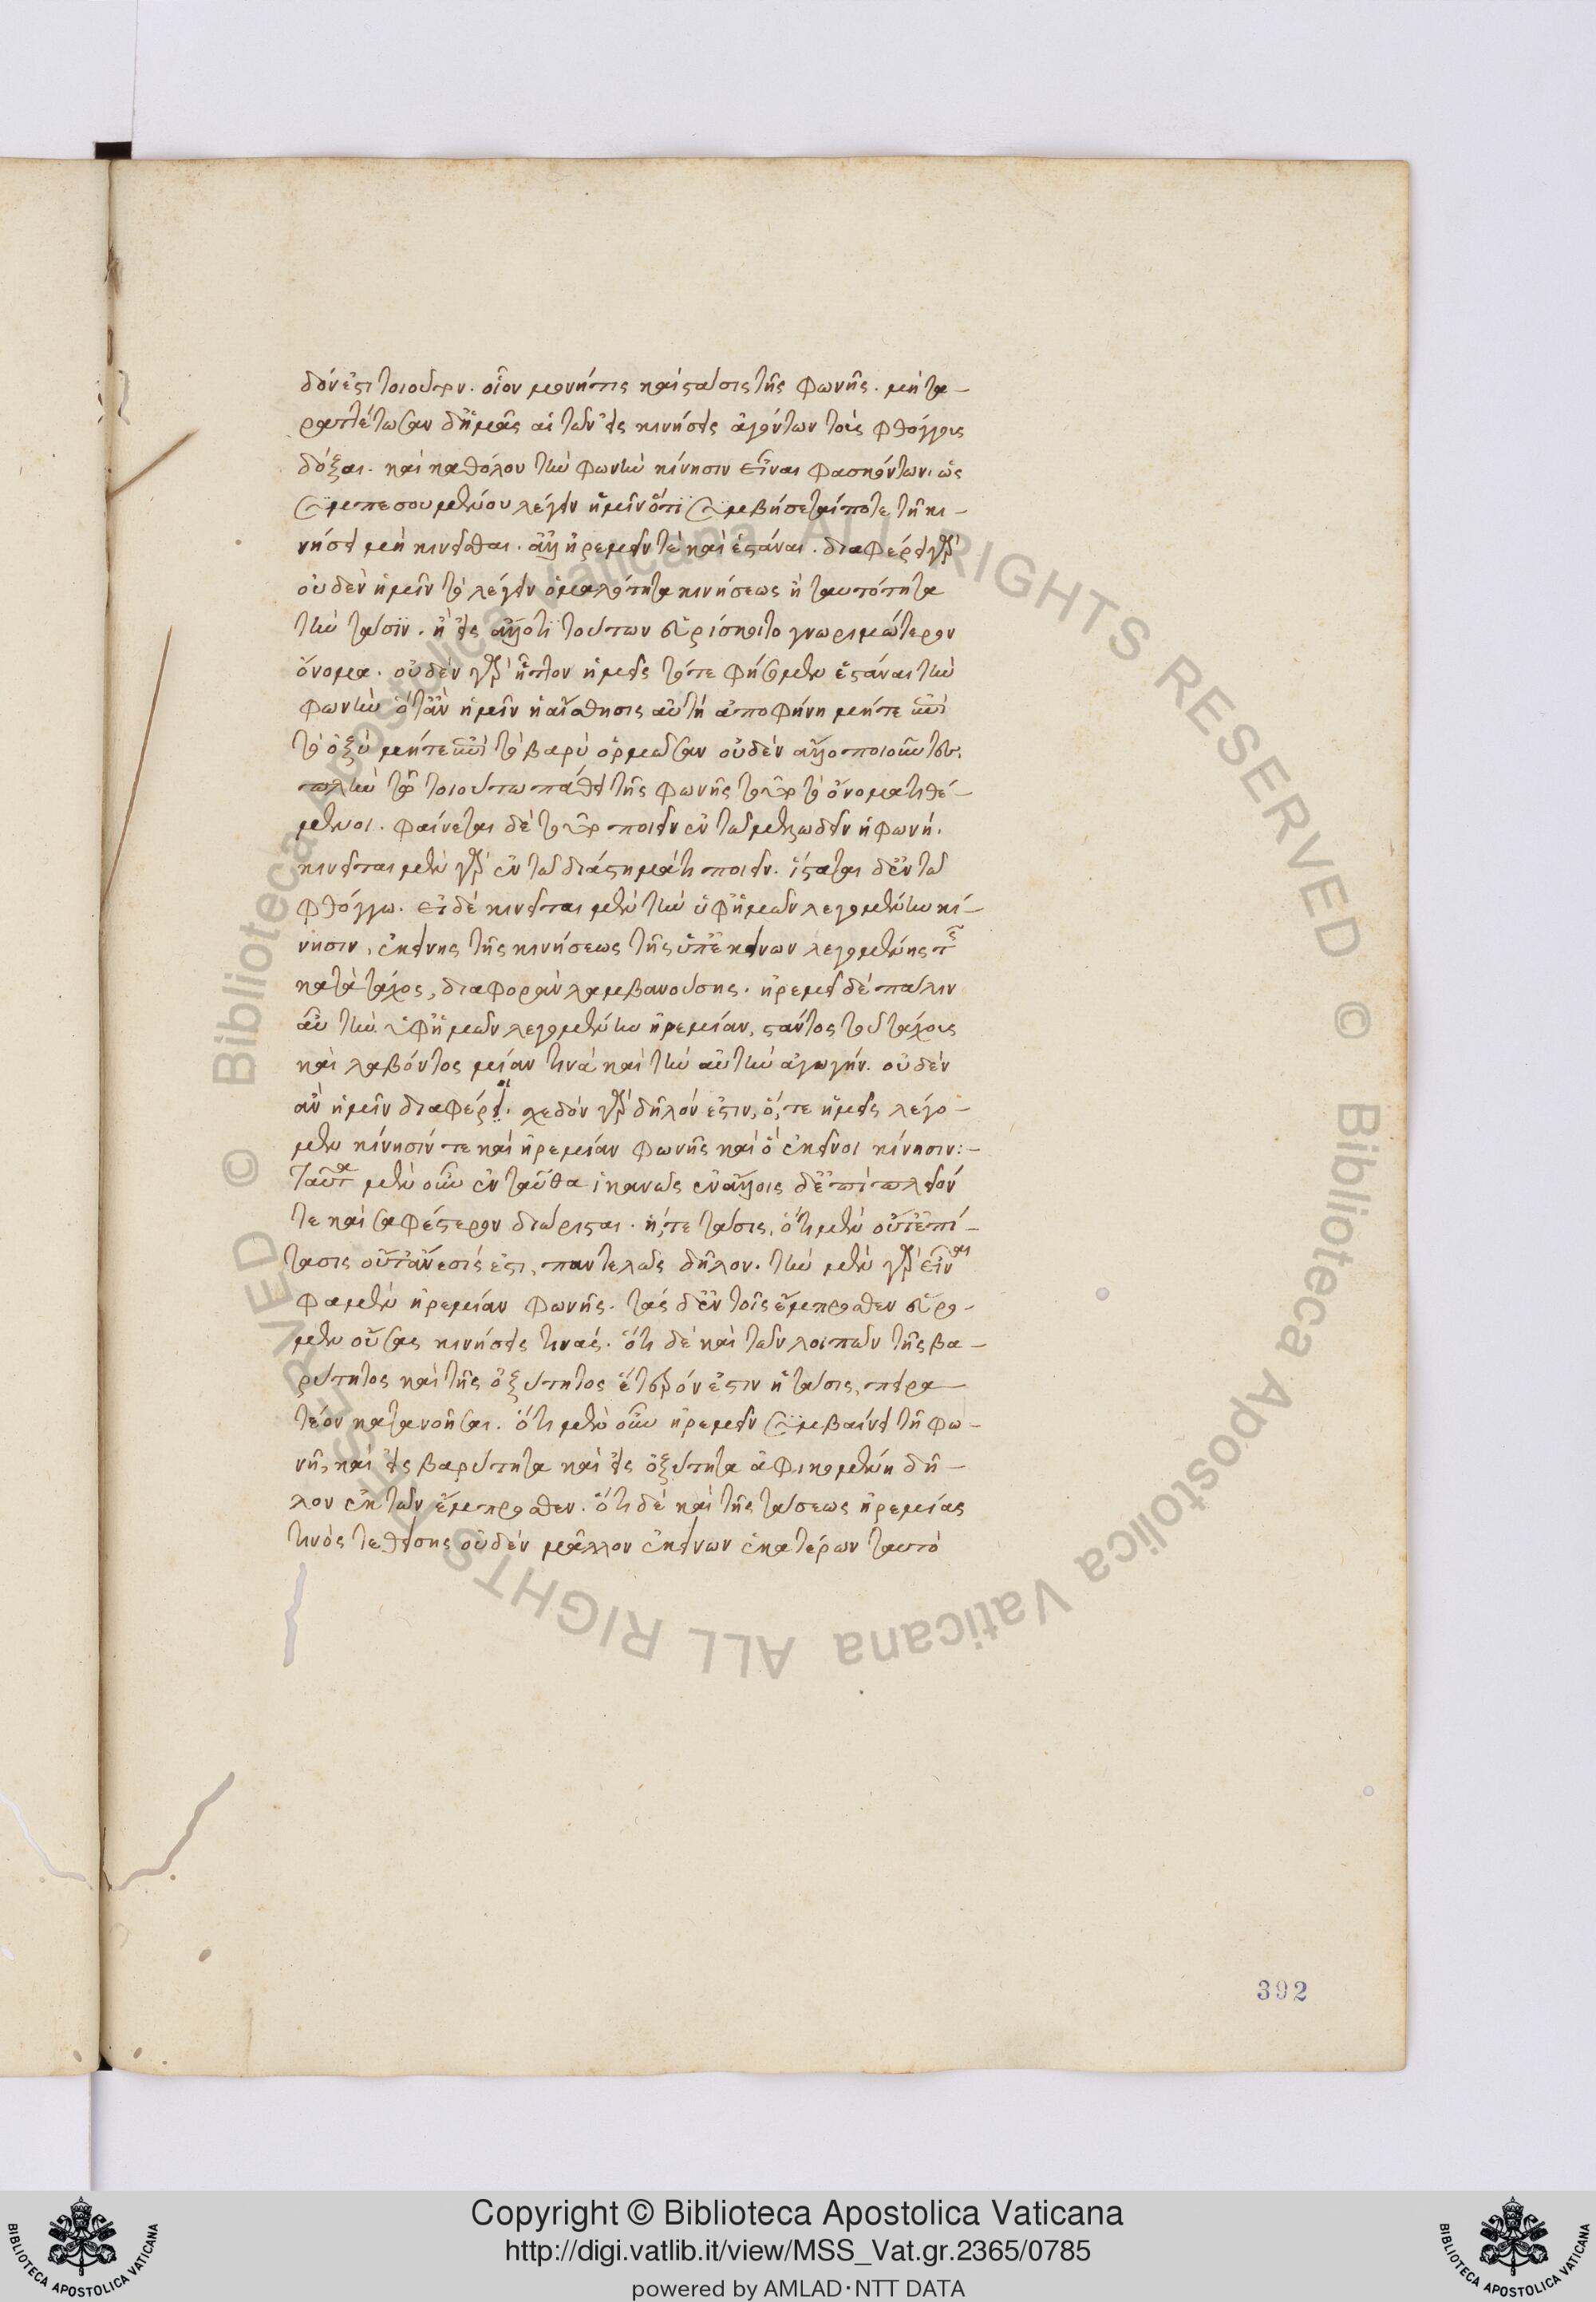 δόν ἐστι τοιοῦτον. οἷον μονή τις καὶ στάσις τῆς φωνῆς. μὴ τα-
ραττέτωσαν δ' ἡμᾶς αἱ τῶν εἰς κινήσεις ἀγόντων τοὺς φθόγγους
δόξαι. καὶ καθόλου τὴν φωνὴν κίνησιν εἶναι φασκόντων, ὡς
συμπεσουμένου λέγειν ἡμῖν ὅτι συμβήσεταί ποτε τῇ κι-
νήσει μὴ κινεῖσθαι. ἀλλ' ἠρεμεῖν τὲ καὶ ἑστάναι. διαφέρει γὰρ
οὐδὲν ἡμῖν τὸ λέγειν ὁμαλότητα κινήσεως ἢ ταυτότητα
τὴν τάσιν. ἢ εἰς ἄλλο τι τούτων εὑρίσκοιτο γνωριμώτερον
ὄνομα. οὐδὲν γὰρ ἧττον ἡμεῖς τότε φήσομεν ἑστάναι τὴν
φωνὴν ὅταν ἡμῖν ἡ αἴσθησις αὐτὴ ἀποφήνη μήτε ἐπὶ
τὸ ὀξὺ μήτε ἐπὶ τὸ βαρὺ ὁρμῶσαν οὐδὲν ἄλλο ποιοῦντες.
πλὴν τῷ τοιούτω πάθει τῆς φωνῆς τοῦτο τὸ ὄνομα τιθέ-
μενοι. φαίνεται δὲ τοῦτο ποιεῖν ἐν τῶ μελωδεῖν ἡ φωνή.
κινεῖται μὲν γὰρ ἐν τῶ διάστημά τι ποιεῖν. ἵσταται δ' ἐν τῶ
φθόγγω. εἰ δὲ κινεῖται μὲν τὴν ὑφ' ἡμῶν λεγομένην κί-
νησιν, ἐκείνης τῆς κινήσεως τῆς ὑπ' ἐκείνων λεγομένης τ
κατὰ τάχος, διαφορὰν λαμβανούσης. ἠρεμεῖ δὲ πάλιν
αὖ τὴν ὑφ' ἡμῶν λεγομένην ἠρεμίαν, στάντος τοῦ τάχους
καὶ λαβόντος μίαν τινὰ καὶ τὴν αὐτὴν ἀγωγήν. οὐδὲν
ἂν ἡμῖν διαφέροι. σχεδὸν γὰρ δῆλόν ἐστιν, ὅ, τε ἡμεῖς λέγο-
μεν κίνησίν τε καὶ ἠρεμίαν φωνῆς καὶ ὃ ἐκεῖνοι κίνησιν:-
Ταῦτα μὲν οὖν ἐνταῦθα ἱκανῶς ἐν ἄλλοις δὲ ἐπὶ πλεῖόν
τε καὶ σαφέστερον διώρισται. ἥ, τε τάσις, ὅτι μὲν οὔτ' ἐπί-
τασις οὔτ' ἄνεσίς ἐστι, παντελῶς δῆλον. τὴν μὲν γὰρ εἶναι
φαμὲν ἠρεμίαν φωνῆς. τὰς δ' ἐν τοῖς ἔμπροσθεν εὕρο-
μεν οὔσας κινήσεις τινάς. ὅτι δὲ καὶ τῶν λοιπῶν τῆς βα-
ρύτητος καὶ τῆς ὀξύτητος ἕτερόν ἐστιν ἡ τάσις, πειρα
τέον κατανοῆσαι. ὅτι μὲν οὖν ἠρεμεῖν συμβαίνει τῇ φω-
νῇ, καὶ εἰς βαρύτητα καὶ εἰς ὀξύτητα ἀφικομένη δῆ-
λον ἐκ τῶν ἔμπροσθεν. ὅτι δὲ καὶ τῆς τάσεως ἠρεμίας
τινὸς τεθείσης οὐδὲν μᾶλλον ἐκείνων ἑκατέρων ταυτὸ
392
© Biblioteca Apostolica Vaticana ALL RIGHTS RESERVED © Biblioteca Apostolica Vaticana ALL RIGHTS RESERVED
Copyright © Biblioteca Apostolica Vaticana
http://digi.vatlib.it/view/MSS_Vat.gr.2365/0785
powered by AMLAD·NTT DATA
BIBLIOTECA APOSTOLICA VATICANA
BIBLIOTECA APOSTOLICA VATICANA